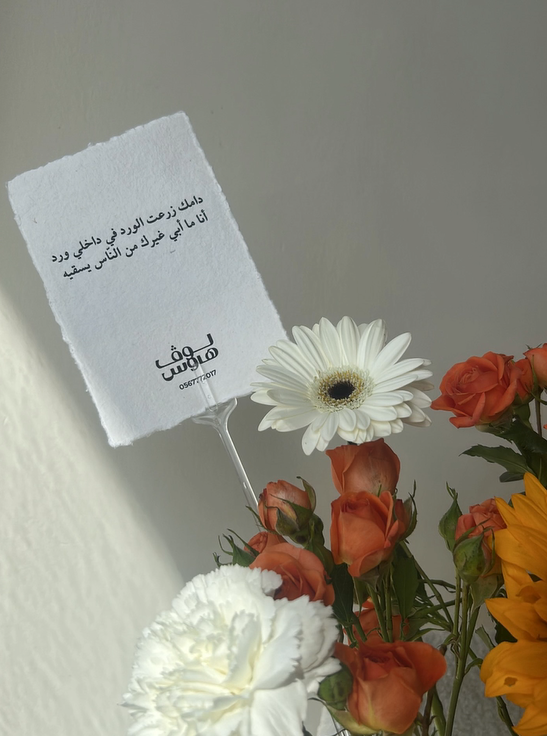 دامك زرعت الورد في داخلي ورد
أنا ما أبي غيرك من الناس يسقيه
لوڤ
هاوس